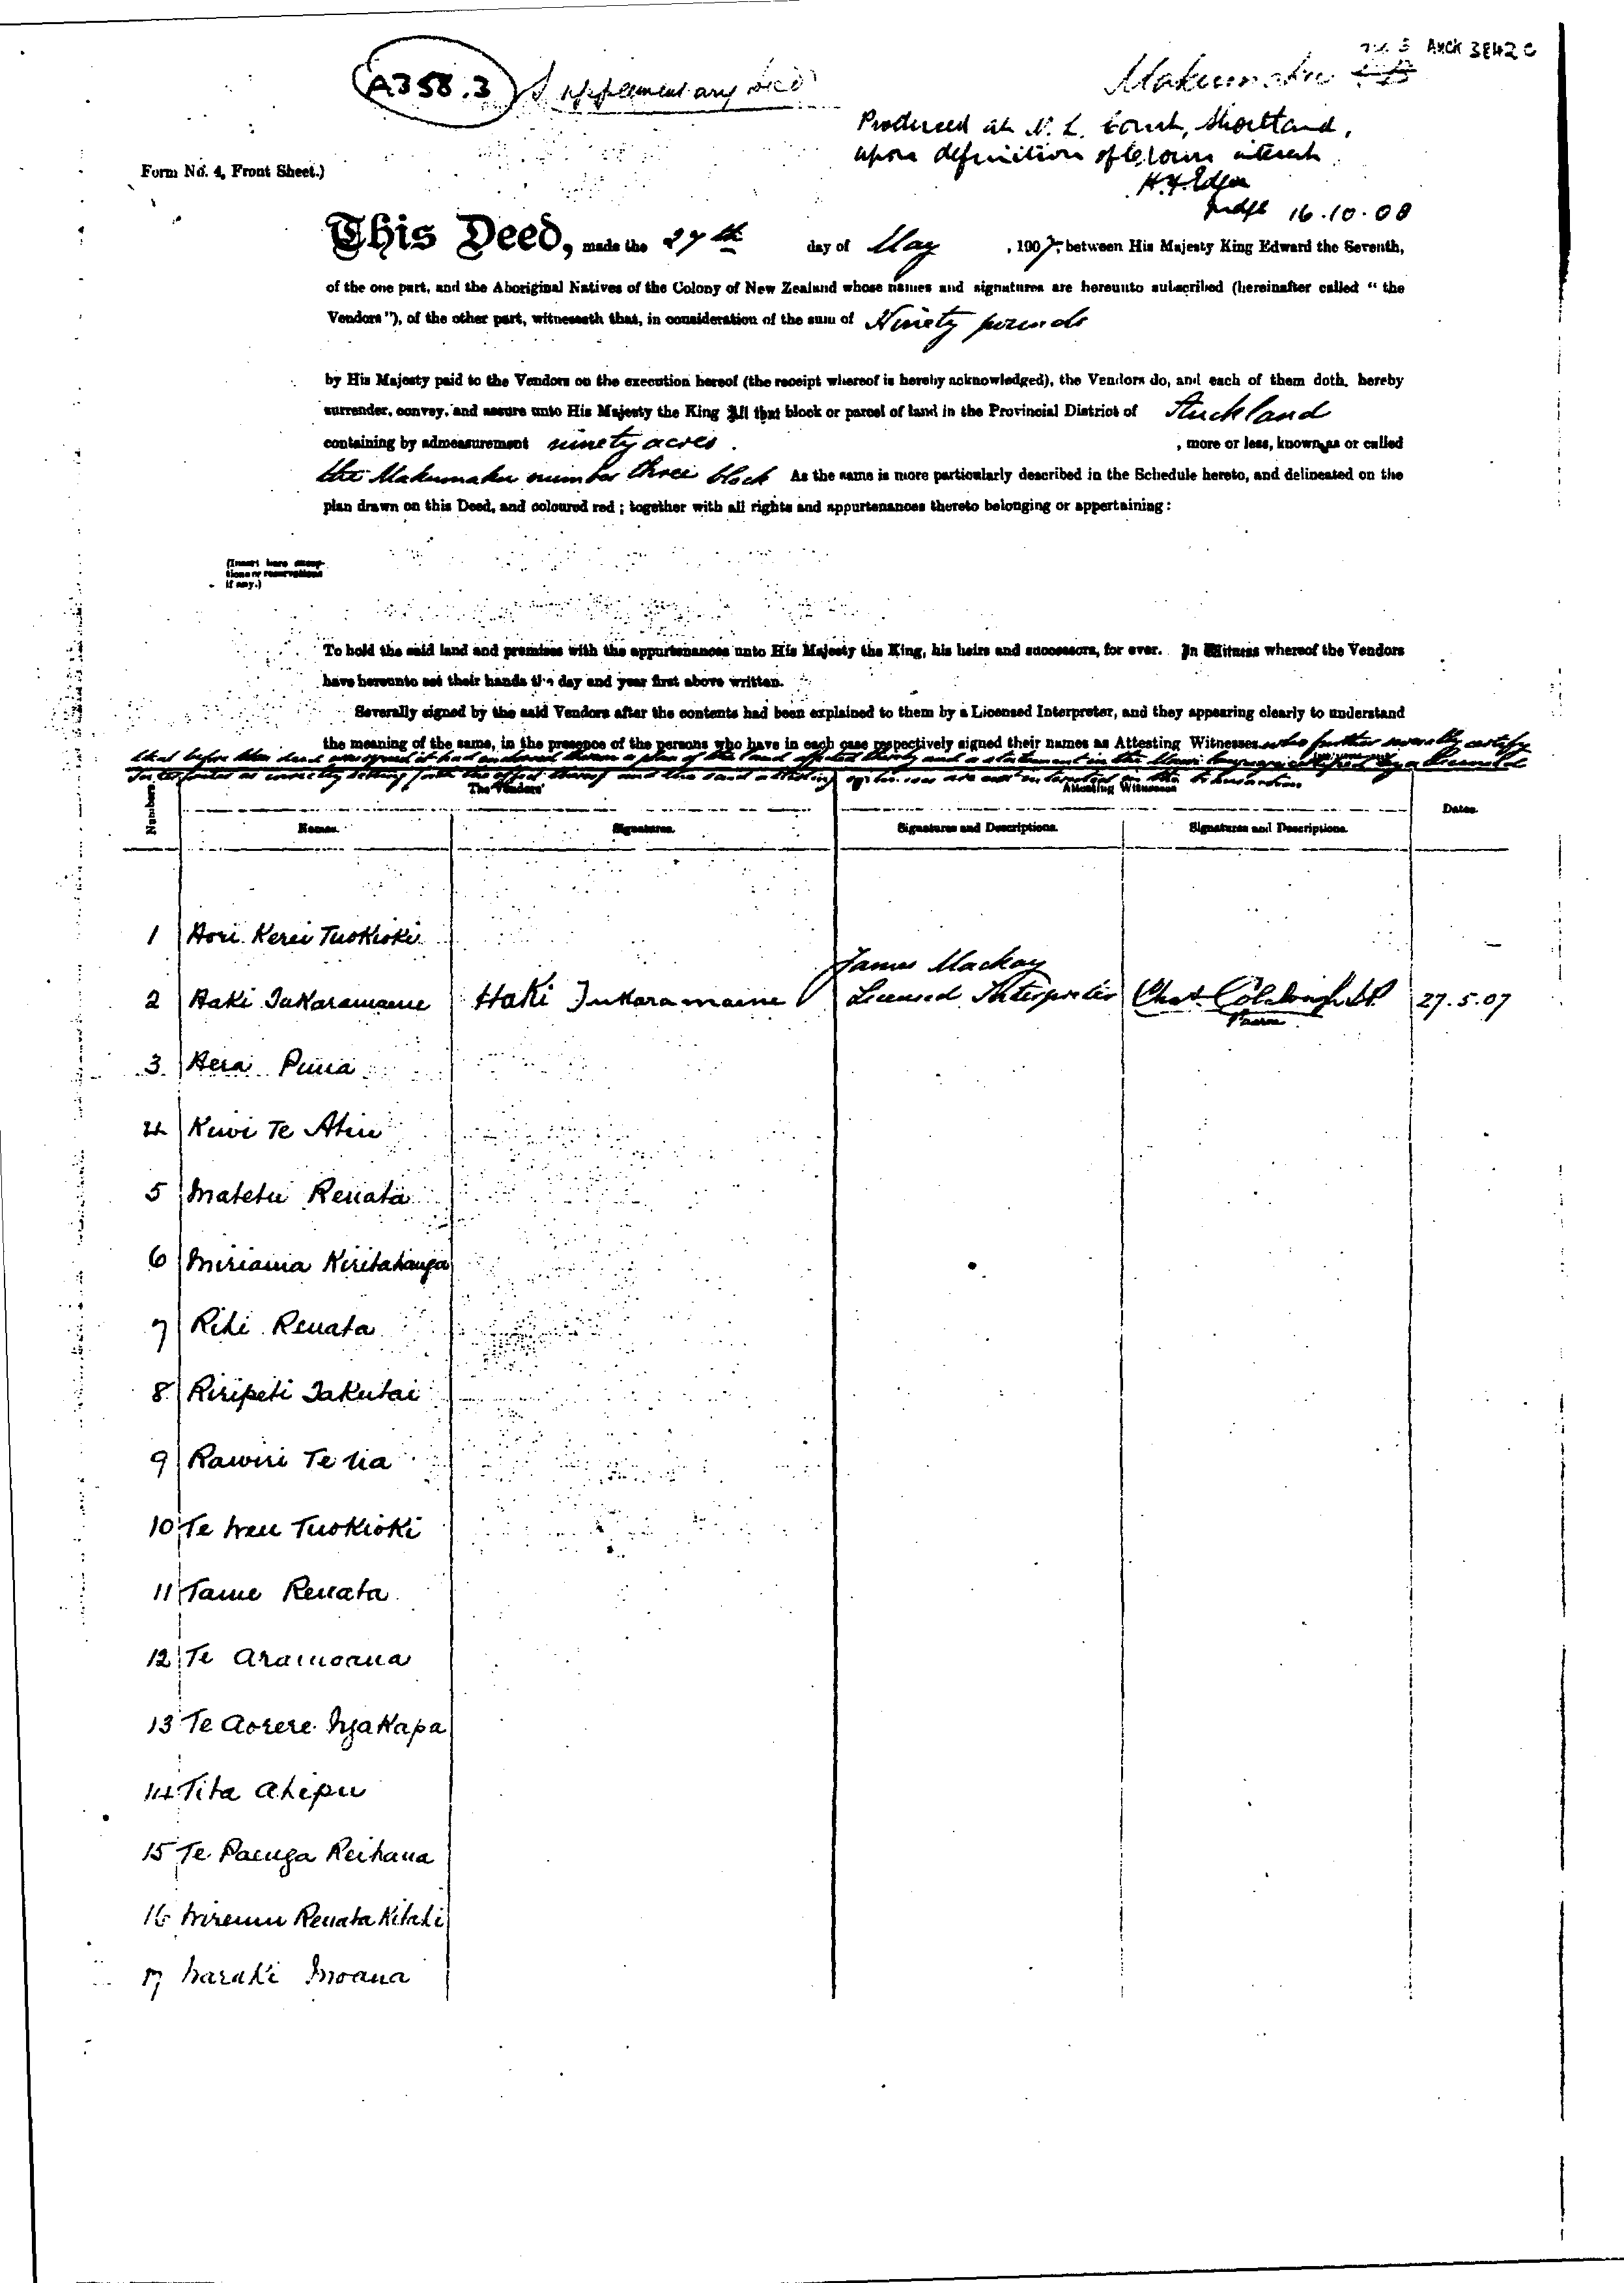 A358.3 Supplementary Deed
Auck 3842 C
Makumaku
Produced at N. L. Court, Shortland,
upon definition of Crown interest.
H. F. Edger
Judge 16.10.08
Form No. 4, Front Sheet.)
This Deed, made the 27th day of May , 1907, between His Majesty King Edward the Seventh,
of the one part, and the Aboriginal Natives of the Colony of New Zealand whose names and signatures are hereunto subscribed (hereinafter called "the
Vendors"), of the other part, witnesseth that, in consideration of the sum of Ninety pounds
by His Majesty paid to the Vendors on the execution hereof (the receipt whereof is hereby acknowledged), the Vendors do, and each of them doth, hereby
surrender, convey, and assure unto His Majesty the King All that block or parcel of land in the Provincial District of Auckland
containing by admeasurement ninety acres. , more or less, known as or called
the Makumaku number three block As the same is more particularly described in the Schedule hereto, and delineated on the
plan drawn on this Deed, and coloured red; together with all rights and appurtenances thereto belonging or appertaining:
(Insert here excep-
tions or reservations
if any.)
To hold the said land and premises with the appurtenances unto His Majesty the King, his heirs and successors, for ever. In Witness whereof the Vendors
have hereunto set their hands the day and year first above written.
Severally signed by the said Vendors after the contents had been explained to them by a Licensed Interpreter, and they appearing clearly to understand
the meaning of the same, in the presence of the persons who have in each case respectively signed their names as Attesting Witnesses who further severally certify
that before this deed was signed it had endorsed thereon a plan of the land affected thereby and a statement in the Maori language certified by a licensed
Interpreter as correctly setting forth the effect thereof and the said attesting witnesses are not interested in the transaction
Numbers. The Vendors' Attesting Witnesses Dates.
Names. Signatures. Signatures and Descriptions. Signatures and Descriptions.
1 Hori Kerei Tuokioki
James Mackay
2 Haki Tukaramaene Haki Tukaramaine Licensed Interpreter Chas. Colclough J.P. 27.5.07
Paeroa
3 Hera Puna
4 Kiwi Te Ahu
5 Matetu Renata
6 Miriama Kiritahanga
7 Rihi Renata
8 Riripeti Takutai
9 Rawiri Te Ua
10 Te Weu Tuokioki
11 Tame Renata
12 Te Aramoana
13 Te Aorere Ngakapa
14 Tita Ahipu
15 Te Paenga Reihana
16 Wiremu Renata Kitahi
17 Haraki Moana